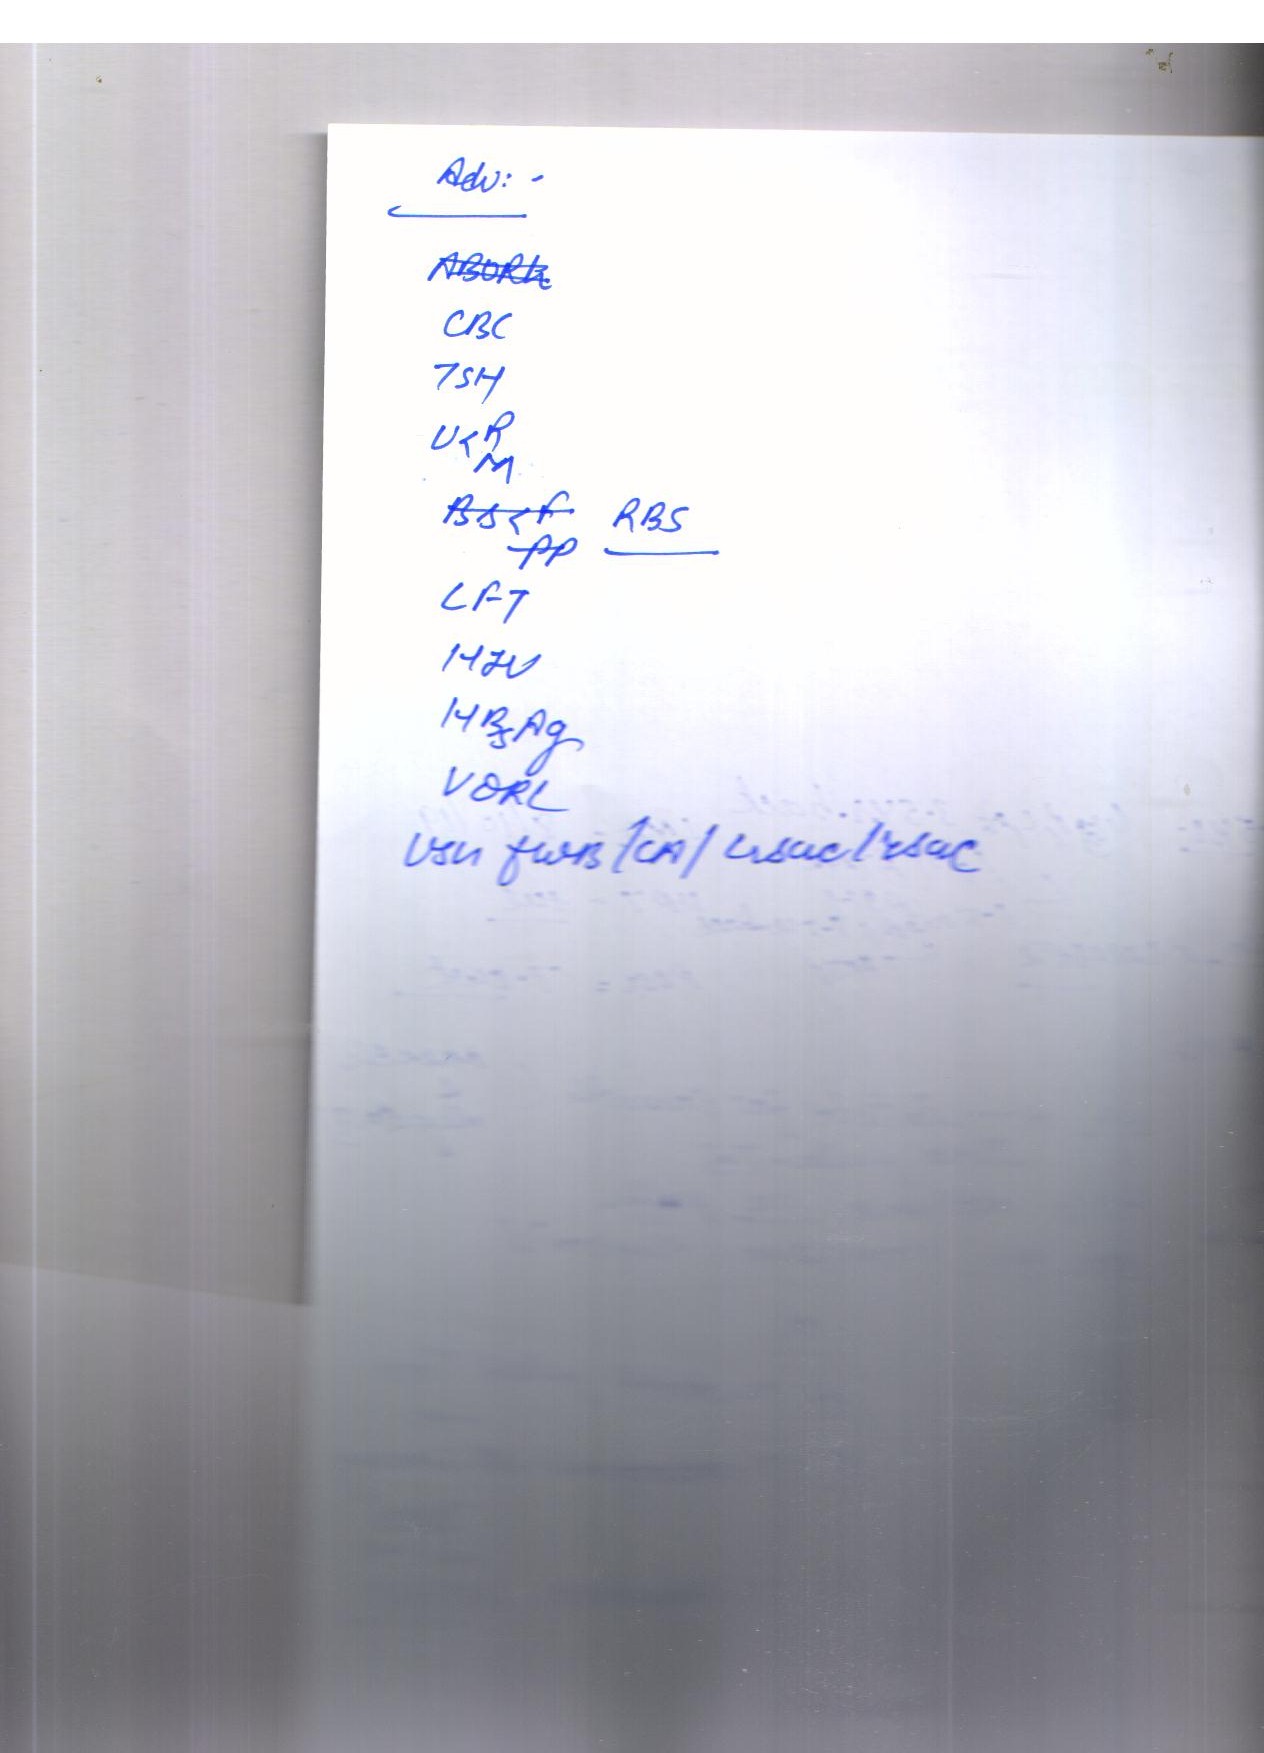 Adv: -
CBC
TSH
U < R
M
BS < F RBS
PP
LFT
HIV
HBsAg
VDRL
USG fWB / CA /